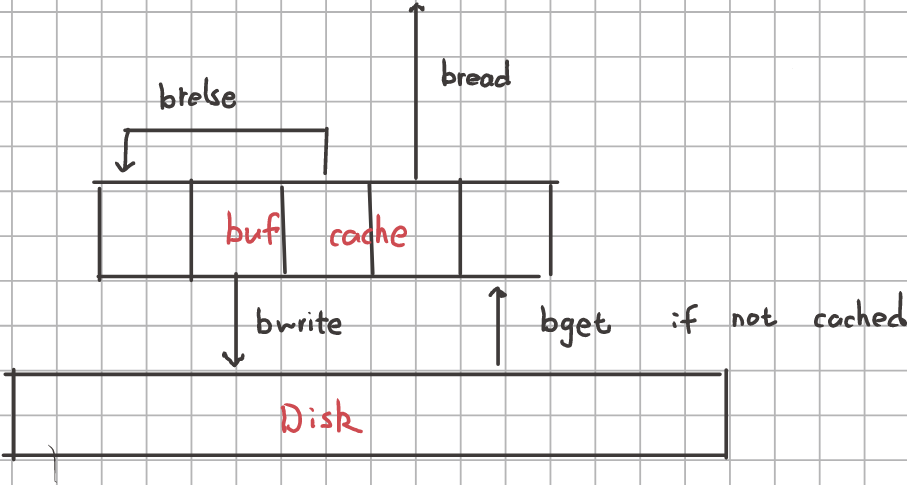 bread
brelse
buf cache
bwrite
bget if not cached
Disk